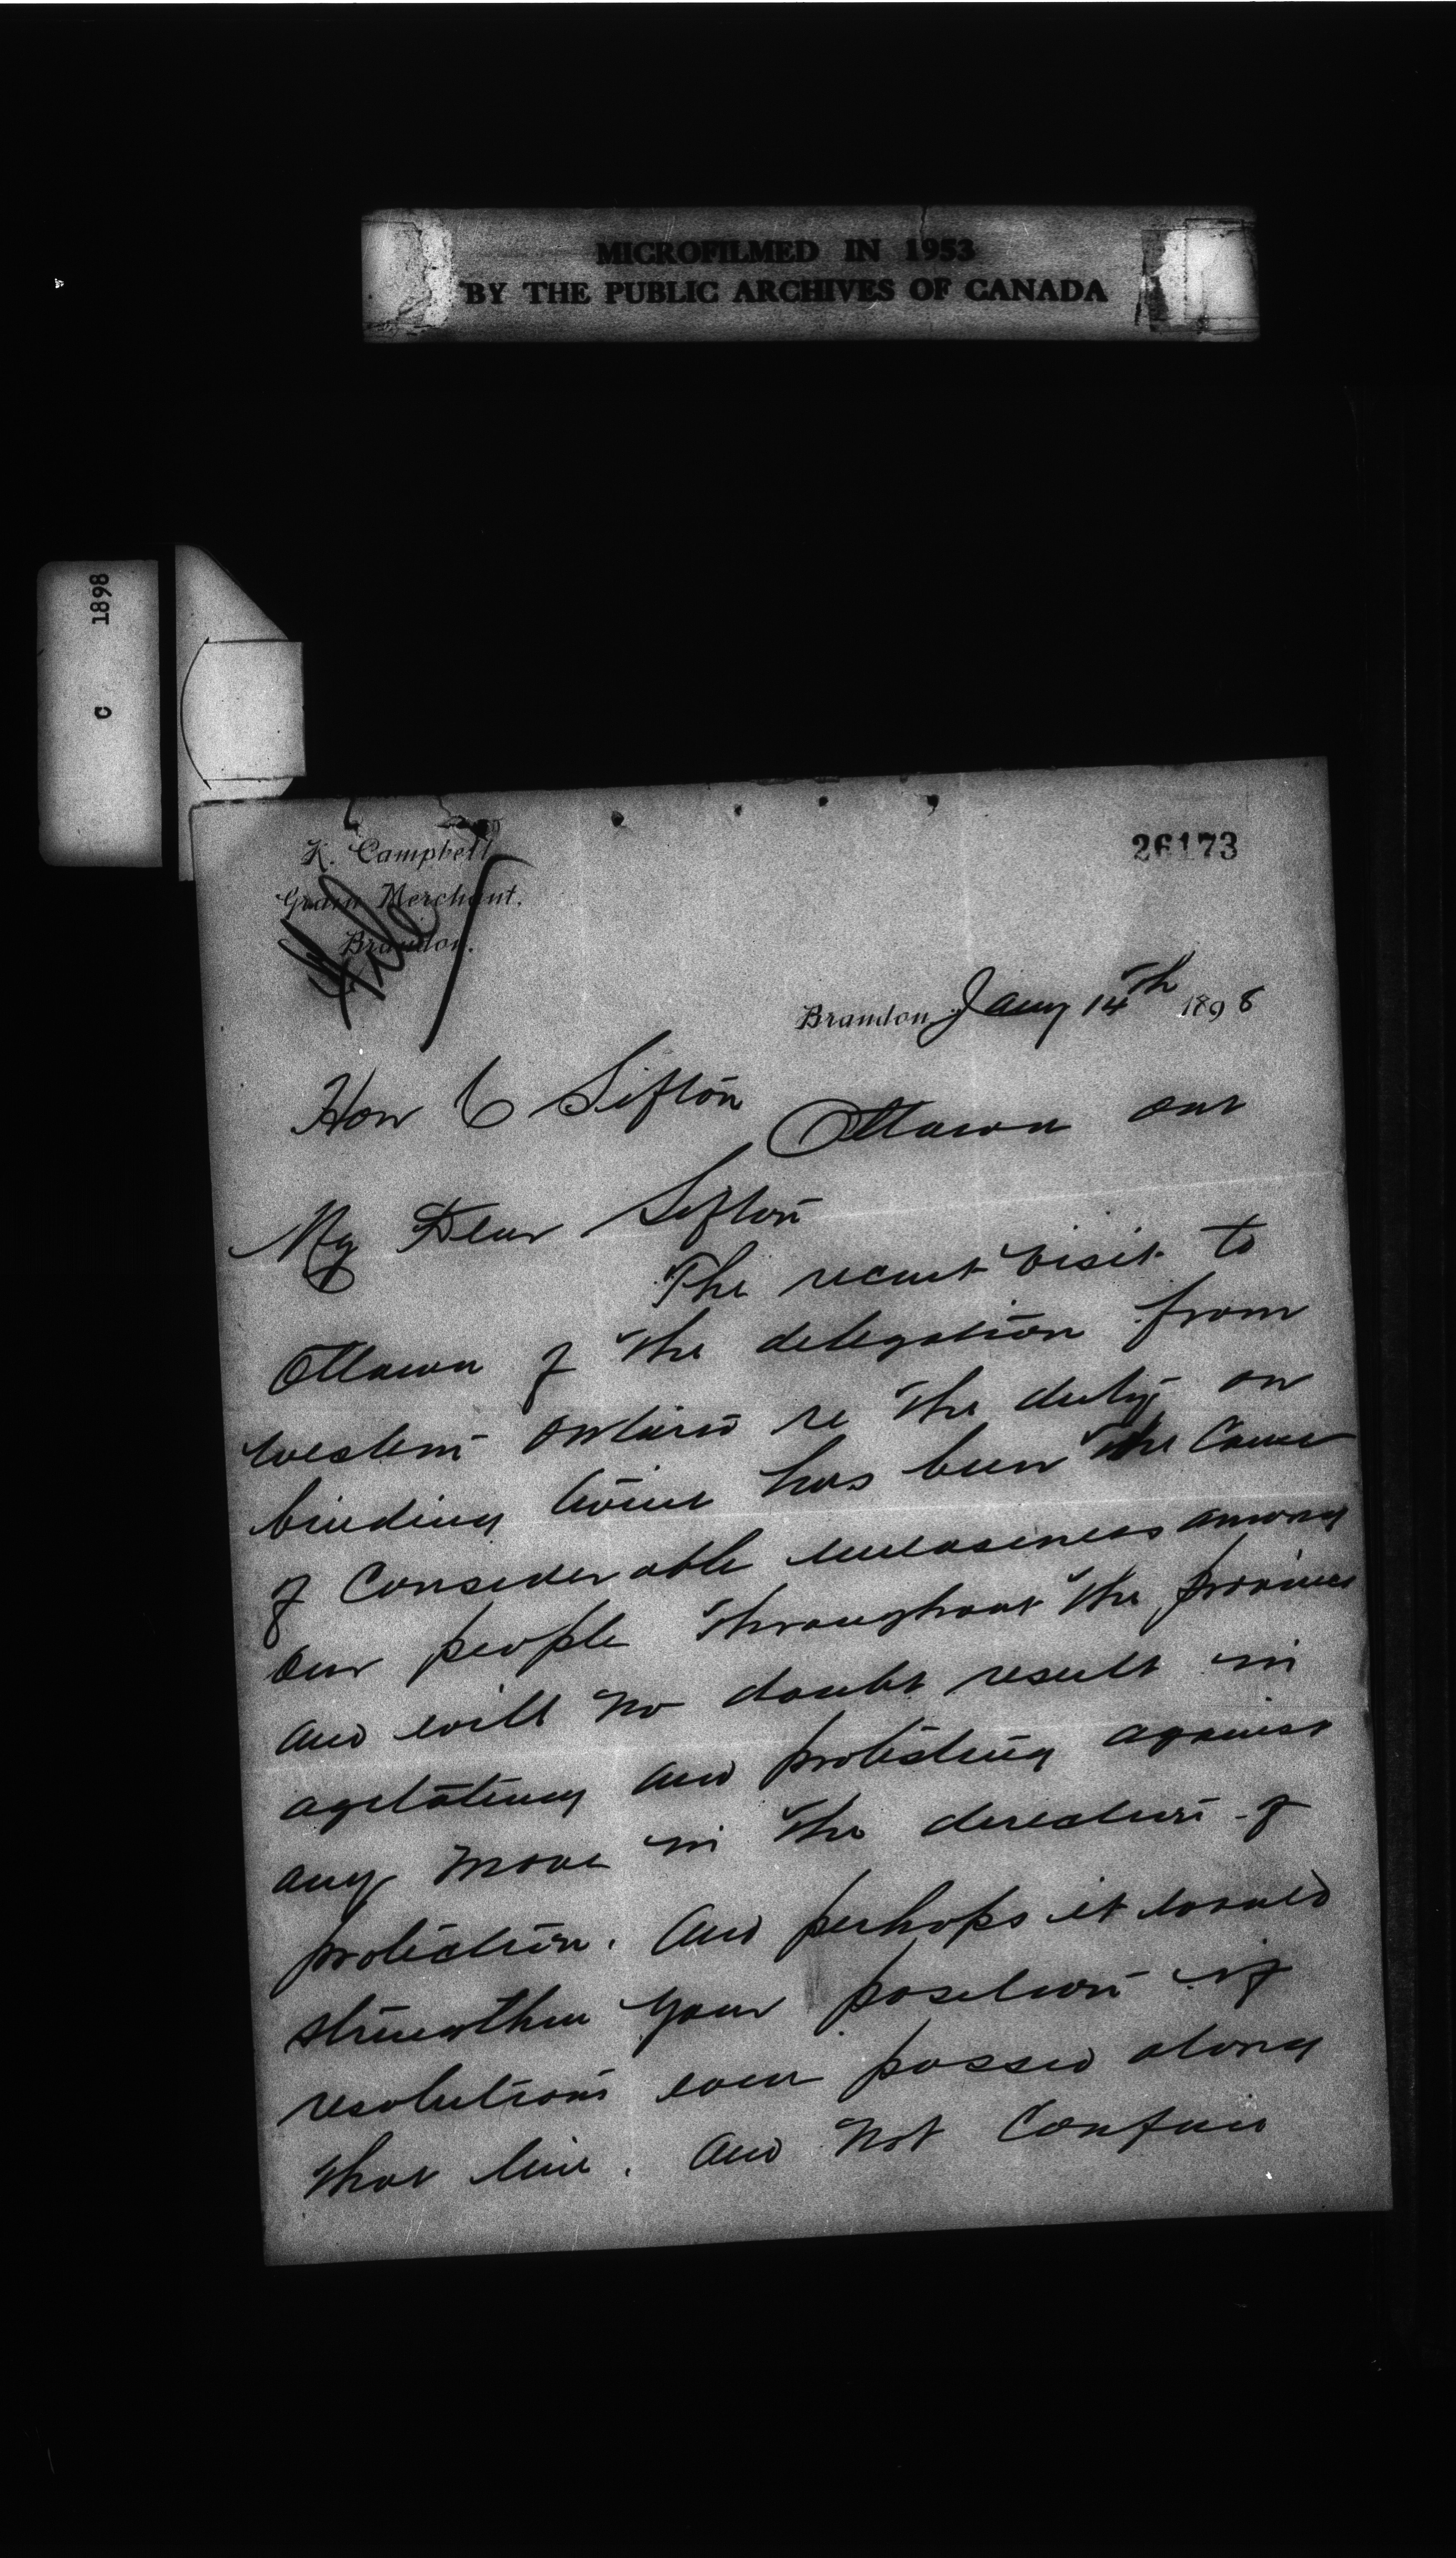 MICROFILMED IN 1953
BY THE PUBLIC ARCHIVES OF CANADA
C 1898
26173
K. Campbell,
Grain Merchant,
Brandon.
File
Brandon, Jany 14th 1898
Hon C Sifton
Ottawa Ont
My Dear Sifton
The recent visit to
Ottawa of the delegation from
western Ontario re the duty on
binding twine has been the Cause
of Considerable uneasiness among
our people throughout the province
and will no doubt result in
agitating and protesting against
any move in the direction of
protection. And perhaps it would
strengthen your position if
resolutions were passed along
that line. And not Confuse